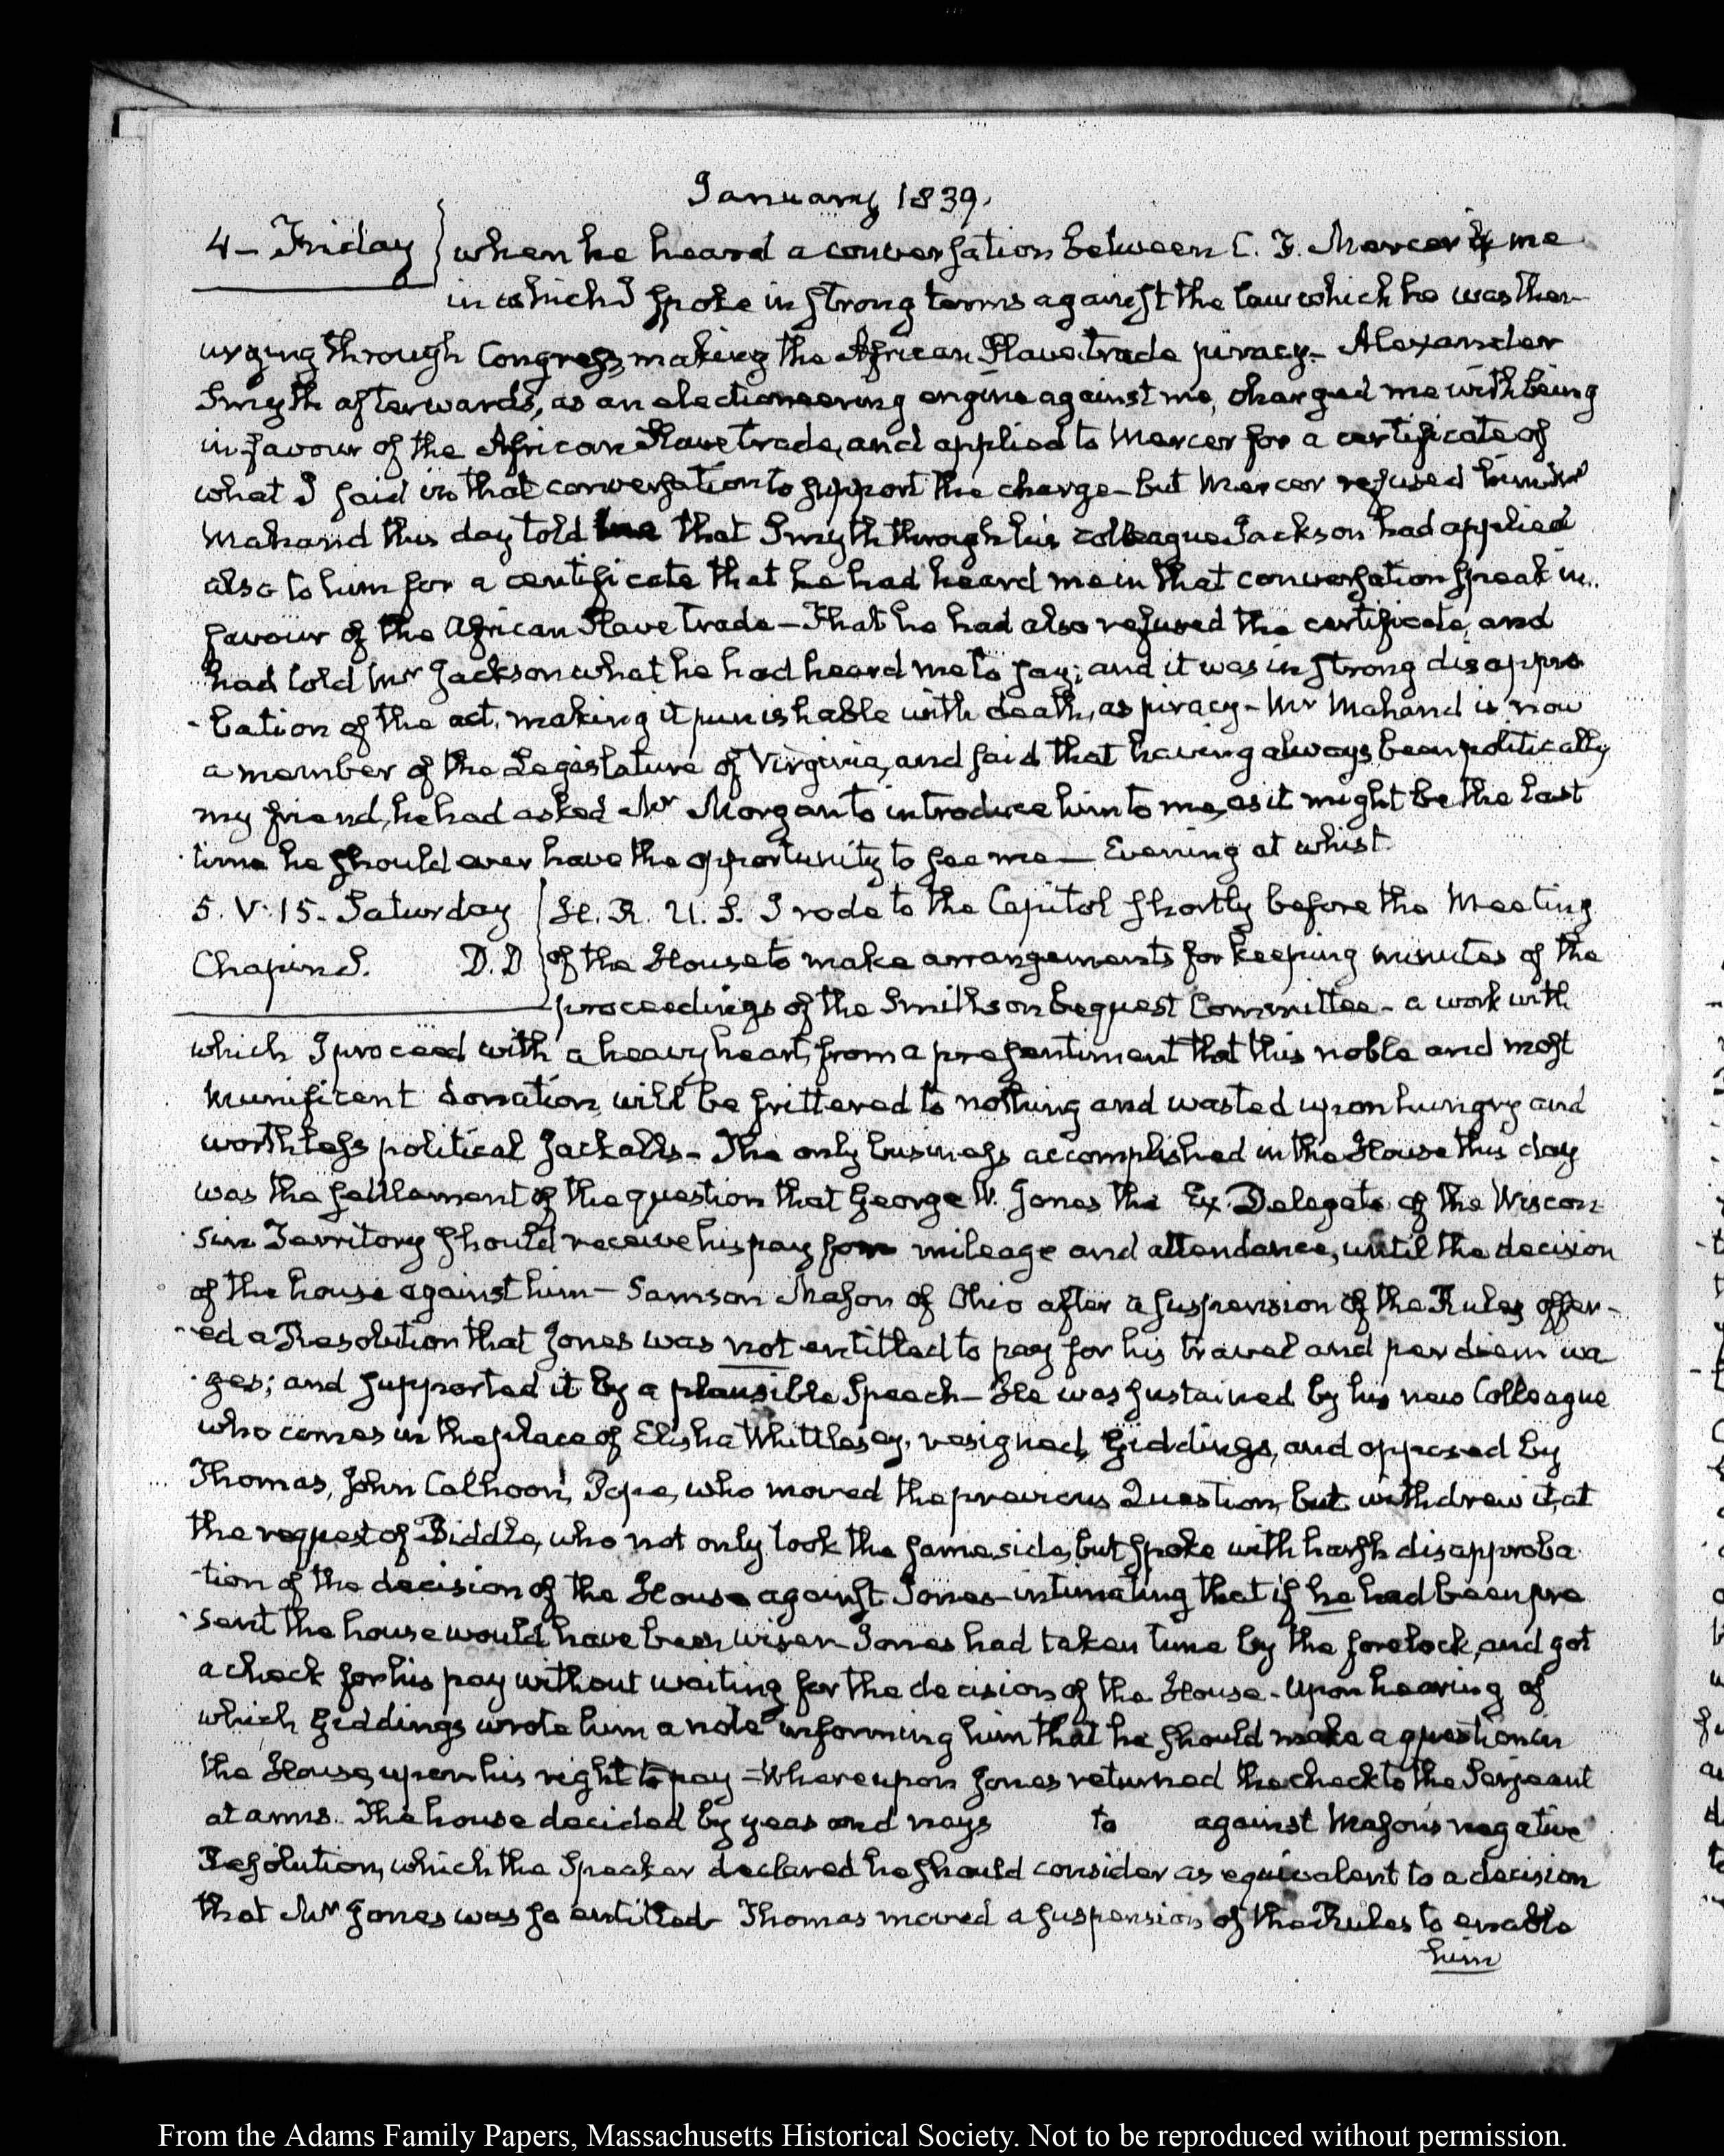 January 1839.
4 – Friday } when he heard a conversation between C. F. Mercer & me
in which I spoke in strong terms against the law which he was then
urging through Congress, making the African Slave trade piracy – Alexander
Smyth afterwards, as an electioneering engine against me, charged me with being
in favour of the African Slave trade, and applied to Mercer for a certificate of
what I said in that conversation to support the charge – but Mercer refused him
Mahand this day told me that Smyth through his colleague Jackson had applied
also to him for a certificate that he had heard me in that conversation speak in
favour of the African Slave trade – That he had also refused the certificate, and
had told Mr Jackson what he had heard me to say; and it was in strong disappro
-bation of the act, making it punishable with death, as piracy – Mr Mahand is now
a member of the Legislature of Virginia, and said that having always been politically
my friend, he had asked Mr Morgan to introduce him to me, as it might be the last
time he should ever have the opportunity to see me – Evening at whist.
5. V. 15. Saturday } H. R. U. S. I rode to the Capitol shortly before the Meeting
Chapin S. D.D } of the House to make arrangements for keeping minutes of the
proceedings of the Smithson bequest Committee – a work with
which I proceed with a heavy heart, from a presentiment that this noble and most
munificent donation, will be frittered to nothing and wasted upon hungry and
worthless political Jackalls – The only business accomplished in the House this day
was the settlement of the question that George W. Jones the Ex Delegate of the Wiscon-
sin Territory should receive his pay for mileage and attendance, until the decision
of the house against him – Samson Mason of Ohio after a suspension of the Rules offer-
-ed a Resolution that Jones was not entitled to pay for his travel and per diem wa
ges; and supported it by a plausible Speech – He was sustained by his new Colleague
who comes in the place of Elisha Whittlesey, resigned, Giddings, and opposed by
Thomas, John Calhoon, Pope, who moved the previous Question, but withdrew it, at
the request of Biddle, who not only took the same side, but spoke with harsh disapproba
-tion of the decision of the House against Jones – intimating that if he had been pre
-sent the house would have been wiser – Jones had taken time by the forelock, and got
a check for his pay without waiting for the decision of the House – Upon hearing of
which Giddings wrote him a note informing him that he should make a question in
the House, upon his right to pay – Whereupon Jones returned the check to the Serjeant
at arms. The house decided by yeas and nays to against Mason's negative
Resolution, which the Speaker declared he should consider as equivalent to a decision
that Mr Jones was so entitled – Thomas moved a suspension of the Rules to enable
him
From the Adams Family Papers, Massachusetts Historical Society. Not to be reproduced without permission.